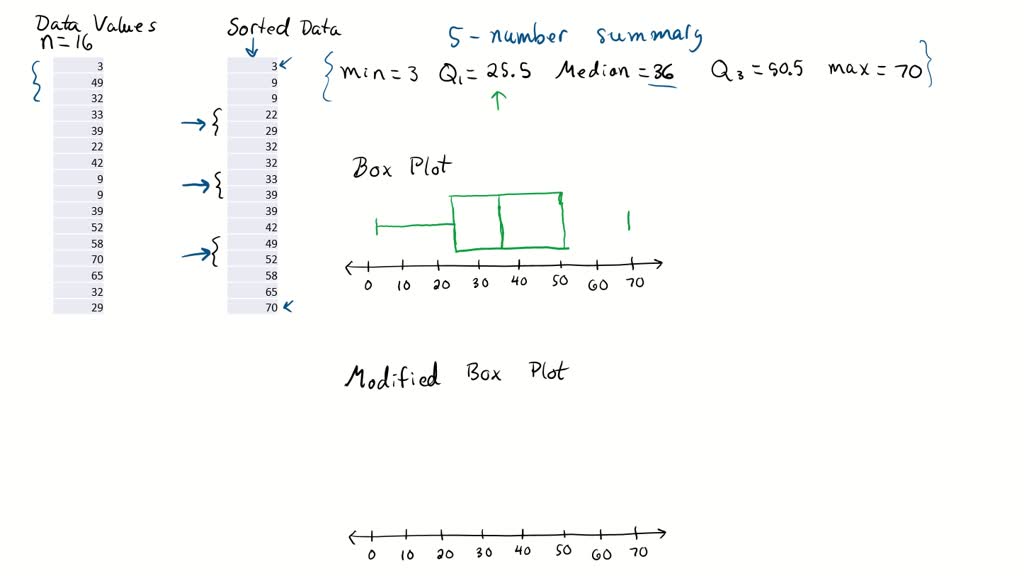 Data Values
n=16
3
49
32
33
39
22
42
9
9
39
52
58
70
65
32
29
Sorted Data
3
9
9
22
29
32
32
33
39
39
42
49
52
58
65
70
5-number summary
{ min=3 Q₁=25.5 Median=36 Q₃=50.5 max=70 }
Box Plot
0 10 20 30 40 50 60 70
Modified Box Plot
0 10 20 30 40 50 60 70